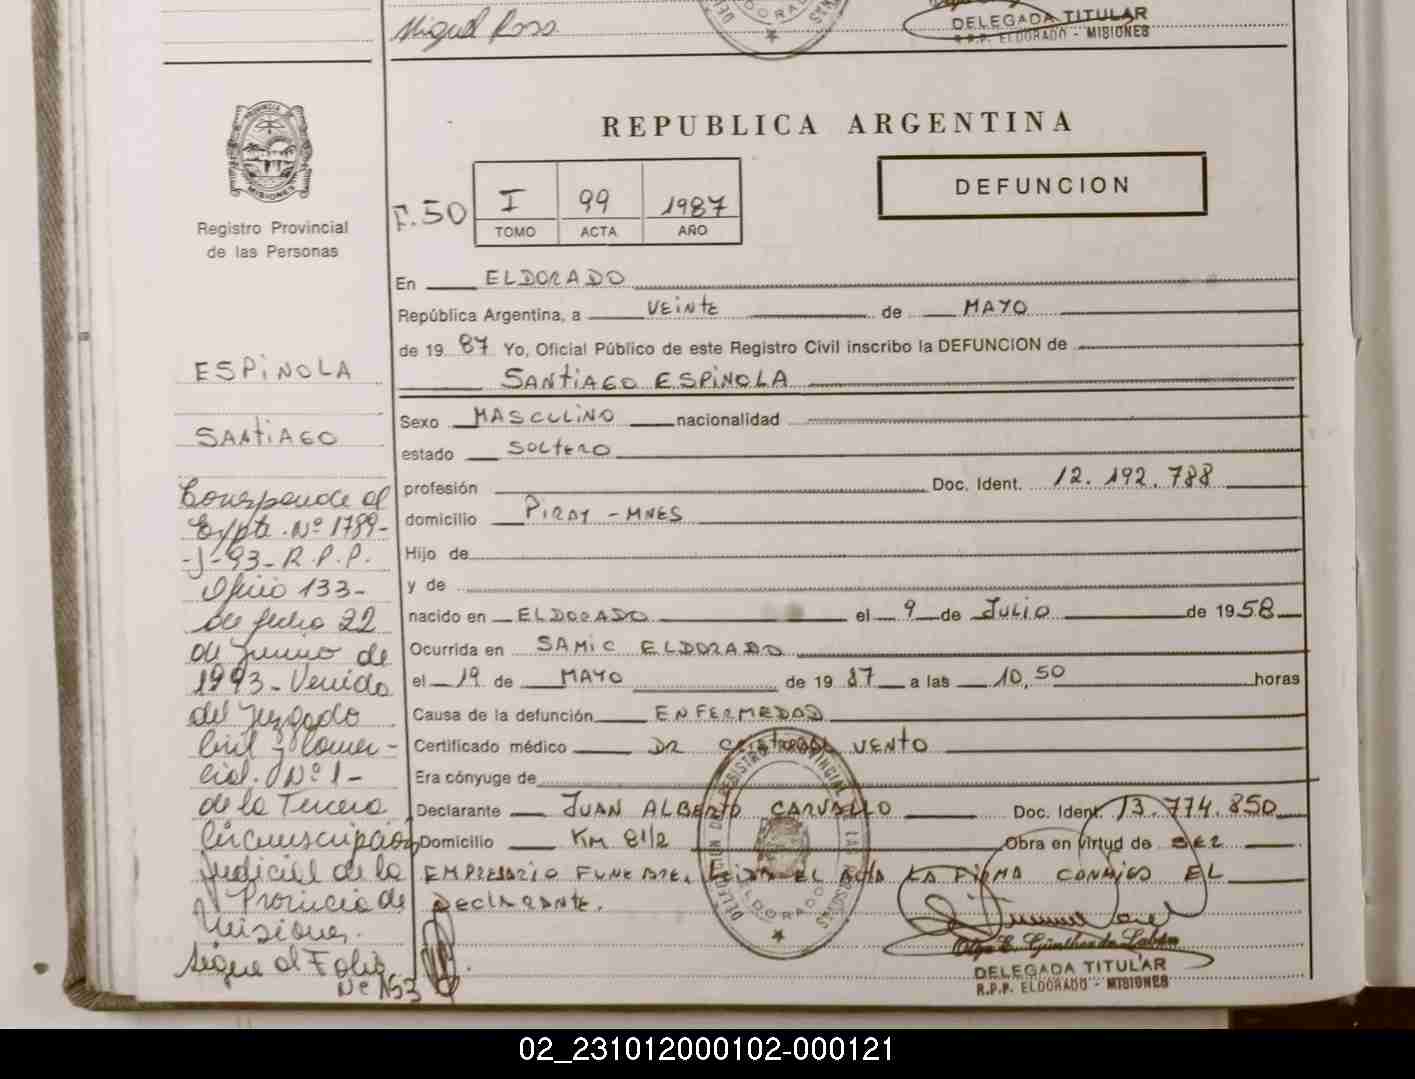 Miguel Ross
DELEGADA TITULAR
R.P.P. ELDORADO - MISIONES
PROVINCIA DE
MISIONES
Registro Provincial
de las Personas
REPUBLICA ARGENTINA
F.50 I 99 1987
TOMO ACTA AÑO
DEFUNCION
En ELDORADO
República Argentina, a VEINTE de MAYO
de 19 87 Yo, Oficial Público de este Registro Civil inscribo la DEFUNCION de
SANTIAGO ESPINOLA
Sexo MASCULINO nacionalidad
estado SOLTERO
profesión Doc. Ident. 12.192.788
domicilio PIRAY - MNES
Hijo de
y de
nacido en ELDORADO el 9 de JULIO de 1958
Ocurrida en SAMIC ELDORADO
el 19 de MAYO de 19 87 a las 10,50 horas
Causa de la defunción ENFERMEDAD
Certificado médico DR CRISTOBAL VENTO
Era cónyuge de
Declarante JUAN ALBERTO CARVALLO Doc. Ident. 13.774.850
Domicilio KM 81/2 Obra en virtud de SER
EMPRESARIO FUNEBRE. LEIDA EL ACTA LA FIRMA CONMIGO EL
DECLARANTE.
ESPINOLA
SANTIAGO
Corresponde al
Expte. Nº 1789-
-J-93- R.P.P.
Oficio 133-
de fecha 22
de Junio de
1993- Venido
del Juzgado
Civil y Comer-
cial. Nº 1-
de la Tercera
Circunscripción
Judicial de la
Provincia de
Misiones.
Sigue al Folio
Nº 153
DELEGACION DE REGISTRO PROVINCIAL DE LAS PERSONAS
ELDORADO
Olga E. Günther de Labán
DELEGADA TITULAR
R.P.P. ELDORADO - MISIONES
02_231012000102-000121